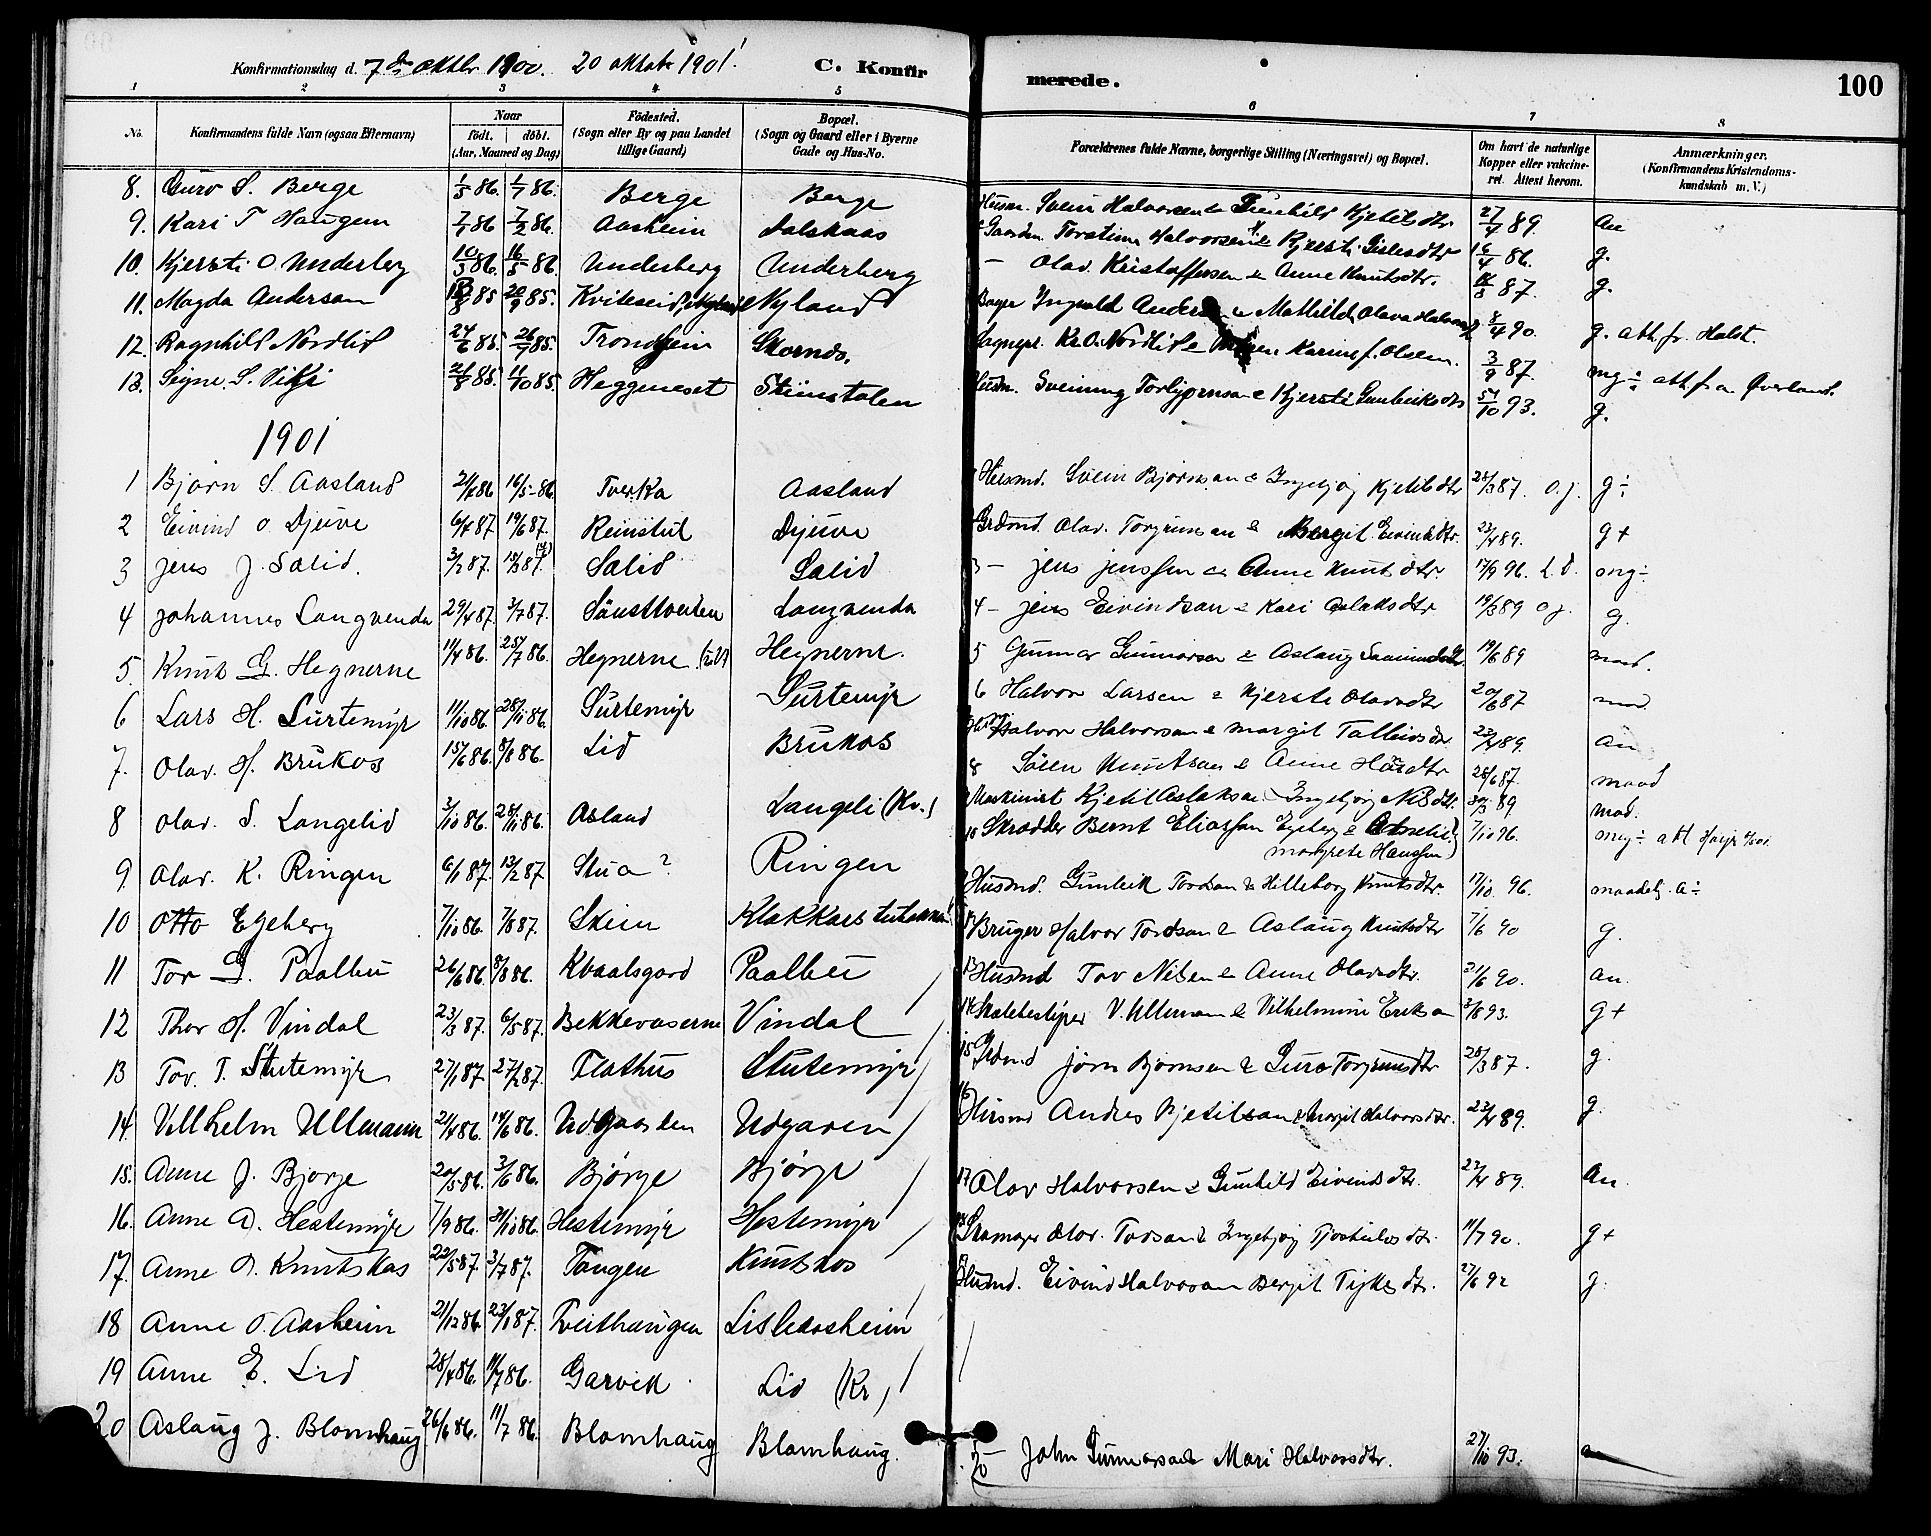 Konfirmationsdag d. 7de oktbr 1900. 20 oktobr 1901. C. Konfirmerede. 100
1 2 3 4 5 6 7 8
No. Konfirmandens fulde Navn (ogsaa Efternavn) Naar födt. döbt. (Aar, Maaned og Dag) Födested. (Sogn eller By og paa Landet tillige Gaard) Bopæl. (Sogn og Gaard eller i Byerne Gade og Hus-No. Forældrenes fulde Navne, borgerlige Stilling (Næringsvei) og Bopæl. Om havt de naturlige Kopper eller vaccineret. Attest herom. Anmærkninger. (Konfirmandens Kristendomskundskab m. V.)
8. Guro S. Berge 1/5 86. 1/7 86. Berge Berge Husm. Svein Halvorsen & Gunhild Kjetilsdtr 27/4 89. an
9. Kari T Haugen 7/1 86 7/2 86. Aasheim Dalskaas Gaardm. Torstein Halvorsen & Kjersti Gislesdtr 16/4 86. g.
10. Kjersti O Underberg 10/3 86. 16/5 86. Underberg Underberg – Olav Kristoffersen & Anne Knutsdtr. 18/3 87. g.
11. Magda Andersen 13/8 85 20/9 85. Kviteseid, Nyland Nyland Bager Ingvald Andersen & Mathilde Olava Halvorsen 8/4 90. g. att. fr. Holst.
12. Ragnhild Nordlid 24/6 85. 26/7 85. Trondhjem Skornds. Sogneprs. Kr. O. Nordlid & Karine f. Olsen. 3/9 87. mg ÷ att. fra Øverland.
13. Signe S. Viki 21/8 85. 11/10 85. Heggeneset Steinstolen Husm. Sveinung Torbjørnsen & Kjersti Gunleiksdtr 54/10 93. g.
1901
1 Bjørn S. Aasland 2/1 86 16/5 86 Tverka Aasland Husmd. Svein Bjørnsen & Ingebjørg Kjetilsdtr 28/3 87. O.J. g ÷
2 Eivind O Djuve 6/4 87. 19/6 87. Reinstul Djuve Grdmd. Olav Torgrimsen & Bergit Eivindsdtr. 23/4 89. g +
3 Jens J. Salid. 3/2 87. 13/3 87. Salid Salid 3 – Jens Jenssen & Anne Knutsdtr. 17/9 96. L.D. mg ÷
4 Johannes Langvenda 29/4 87. 3/7 87. Sønsttveiten Langvenda 4 – Jens Eivindsen & Kari Aslaksdtr 19/3 89 O J. g.
5. Knut G. Hegnerne 11/4 86. 25/7 86. Hegnerne. Hegnerne. 5 Gunnar Gunnarsen & Aslaug Saamundsdtr 19/6 89 maad.
6 Lars H. Surtemyr 11/10 86. 28/11 86. Surtemyr Surtemyr 6 Halvor Larsen & Kjersti Olavsdtr 20/6 87 mad.
7. Olav. H. Brukos 15/6 86. 8/8 86. Lid Brukos Halvor Halvorsen & Margit Tallevsdtr 23/4 89. an
8 Olav. S. Langelid 3/10 86. 28/11 86. Asland Langeli (Kv.) 8 Søren Knutsen & Anne Hansdtr 28/6 87. maad
9. Olav. K. Ringen 6/1 87. 13/2 87 Stua? Ringen Maskinist Kjetil Aslaksen Ingebjørg Nilsdtr. 30/3 89 mad.
10 Otto Egeberg 7/10 86. 7/8 87. Skien Klokkarstuhaven 10 Skrædder Bernt Eliassen Egeberg & Margrete Hanssen) 7/10 96. meg ÷ att
11 Tor G. Paalbu 26/6 86. 8/8 86. Kvaalsgard Paalbu Husmd. Gunleik Torsen & Hilleborg Knutsdtr. 17/10 96. maadelg. a ÷
12 Thor H. Vindal 23/3 87. 6/5 87. Bekkevaserne Vindal 12 Bruger Halvor Torsen & Aslaug Knutsdtr 7/6 90 g.
13 Tov. T. Stutemyr 27/1 87 27/2 87. Flathus Stutemyr 13 Husmd Tov Nilsen & Anne Olavsdtr. 21/6 90. an.
14. Villhelm Ullmann 21/4 86. 14/6 86. Udgaarden Udgaren 14 V. Ullmann & Vilhelmine Eriksen 3/8 93. g +
15. Anne J. Bjorge 20/5 86. 3/6 86. Bjørge Bjørge 15 Grdmd Jørn Bjørnsen & Guro Torgrimsdtr 28/3 87. g.
16. Anne A. Hestemyr 7/9 86. 31/10 86. Hestemyr Hestemyr 16 Husmd Andres Kjetilsen & Margit Halvorsdtr. 23/4 89. g.
17. Anne O. Knutskas 22/5 87. 3/7 87. Tangen Knutskos 17 Olav Halvorsen & Gunhild Eivindsdtr. 22/4 89. An.
18 Anne O. Aasheim 21/12 86. 23/1 87. Tveithaugen Lisleaasheim 18 Skomager Olav Torsen & Ingebjørg Tjostulvsdtr. 11/7 90. g +
19 Anne E. Lid 28/4 86. 11/7 86. Garvik Lid (Kv.) 19 Husmd. Eivind Halvorsen Bergit Tykesdtr. 27/6 92 g.
20 Aslaug J. Blomhaug. 26/6 86. 11/7 86. Blomhaug Blomhaug. 20 – John Gunnarsen & Mari Halvorsdtr. 27/10 93.